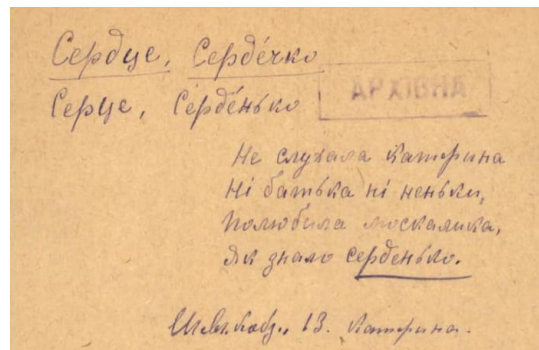 Сердце, Серде́чко
АРХІВНА
Серце, Серде́нько
Не слухала Катерина
Ні батька ні неньки,
Полюбила москалика,
Як знало серденько.
Шевч. Кобз., 13. Катерина.